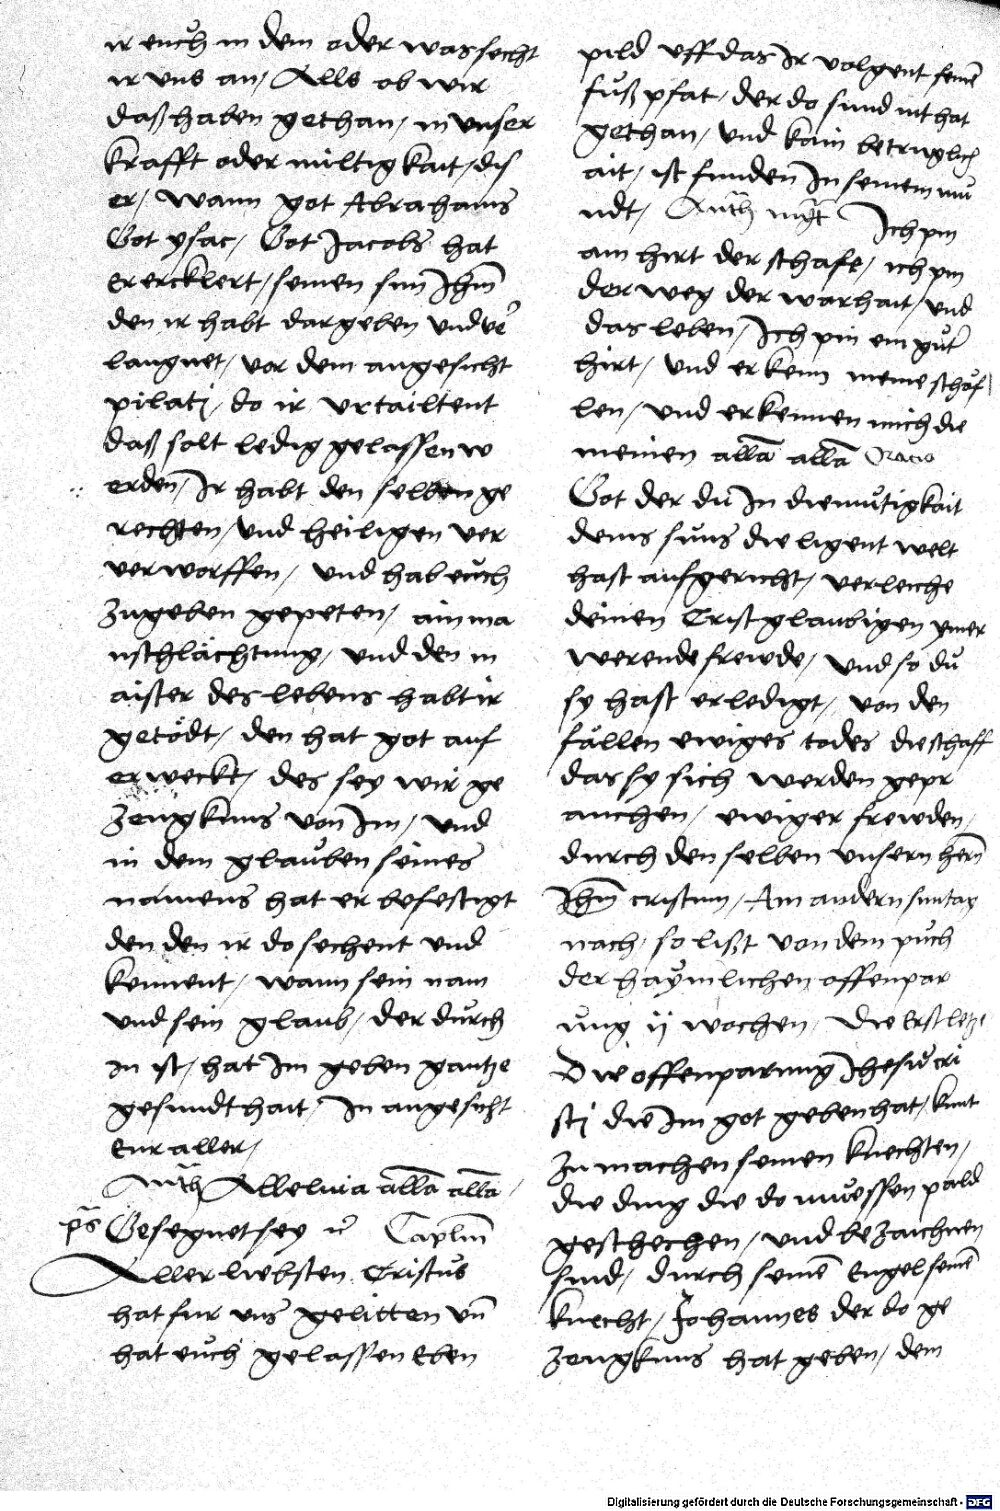 ir euch in dem oder was secht
ir vns an / Alls ob wir
daß haben gethan / in vnser
krafft oder miltigkait / dis
er / wann got Abrahams
Got ysac / Got Jacobs hat
er ercklert / seinen sun Jhm̄
den ir habt dargeben vnd v̄e
laugnet / vor dem angesicht
pilatj / do ir vrtailtent
daß solt ledig gelassen w
erden / Ir habt den selben ge
rechten / vnd heiligen ver
verworffen / vnd hab eüch
zugeben gepeten / ain ma
nschlächtung / vnd den m
aister des lebens habt ir
getödt / den hat got auf
erweckt / des sey wir ge
zeugknus von Im / vnd
in dem glauben seines
namens hat er befestigt
den den ir do sechent vnd
kennent / wann sein nam
vnd sein glaub / der durch
in ist / hat Im geben gantze
gesundthait / In angesicht
Eur aller /
Anth̄ Alleluia alla͞ alla͞ /
ps̄ Gesegnet sey Caplm̄
Aller liebsten Cristus
hat fur vns gelitten vn̄
hat eüch gelassen Eben
pild vff das Ir volgent seine͞
fußpfat / der do sund nit hat
gethan / vnd kain betruglich
ait / ist funden In seinem mu
ndt / Anth̄ Ich pin
ain hirt der schafe / ich pin
der weg der warhait / vnd
das leben / Ich pin ein guter
hirt / vnd erkenn meine schäf
len / vnd erkennen mich die
meinen alla͞ alla͞ Oracio
Got der du In diemutigkait
deins suns die ligent welt
hast aufgericht / verleiche
deinen Cristglaubigen ymer
werende frewde / vnd so du
sy hast erledigt / von den
fällen ewiges todes die schaff
das sy sich werden gepr
auchen / ewiger frewden /
durch den selben vnsern hern̄
Jhm̄ cristum / Am andern suntag
nach / so lißt von dem puch
der haymlichen offenpar
ung ij wochen / Die Erst letz
Die offenparung Jhesu cri
stj die Im got geben hat / kunt
zu machen seinen knechten /
die ding die do muessen pald
geschechen / vnd bezaichnen
sind / durch seine͞ Engel seine͞
knecht / Johannes der do ge
zeugknus hat geben / dem
Digitalisierung gefördert durch die Deutsche Forschungsgemeinschaft - DFG